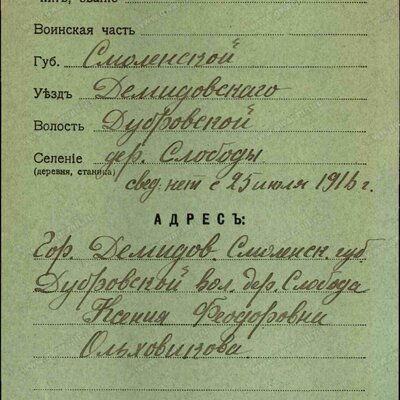 Чинъ, званіе
Воинская часть
Губ. Смоленской
Уѣздъ Демидовскаго
Волость Дубровской
Селеніе дер. Слободы
(деревня, станица)
свед. нет с 25 июля 1916 г.
АДРЕСЪ:
Гор. Демидов. Смоленск. губ.
Дубровской вол. дер. Слобода
Ксения Феодоровна
Ольховикова